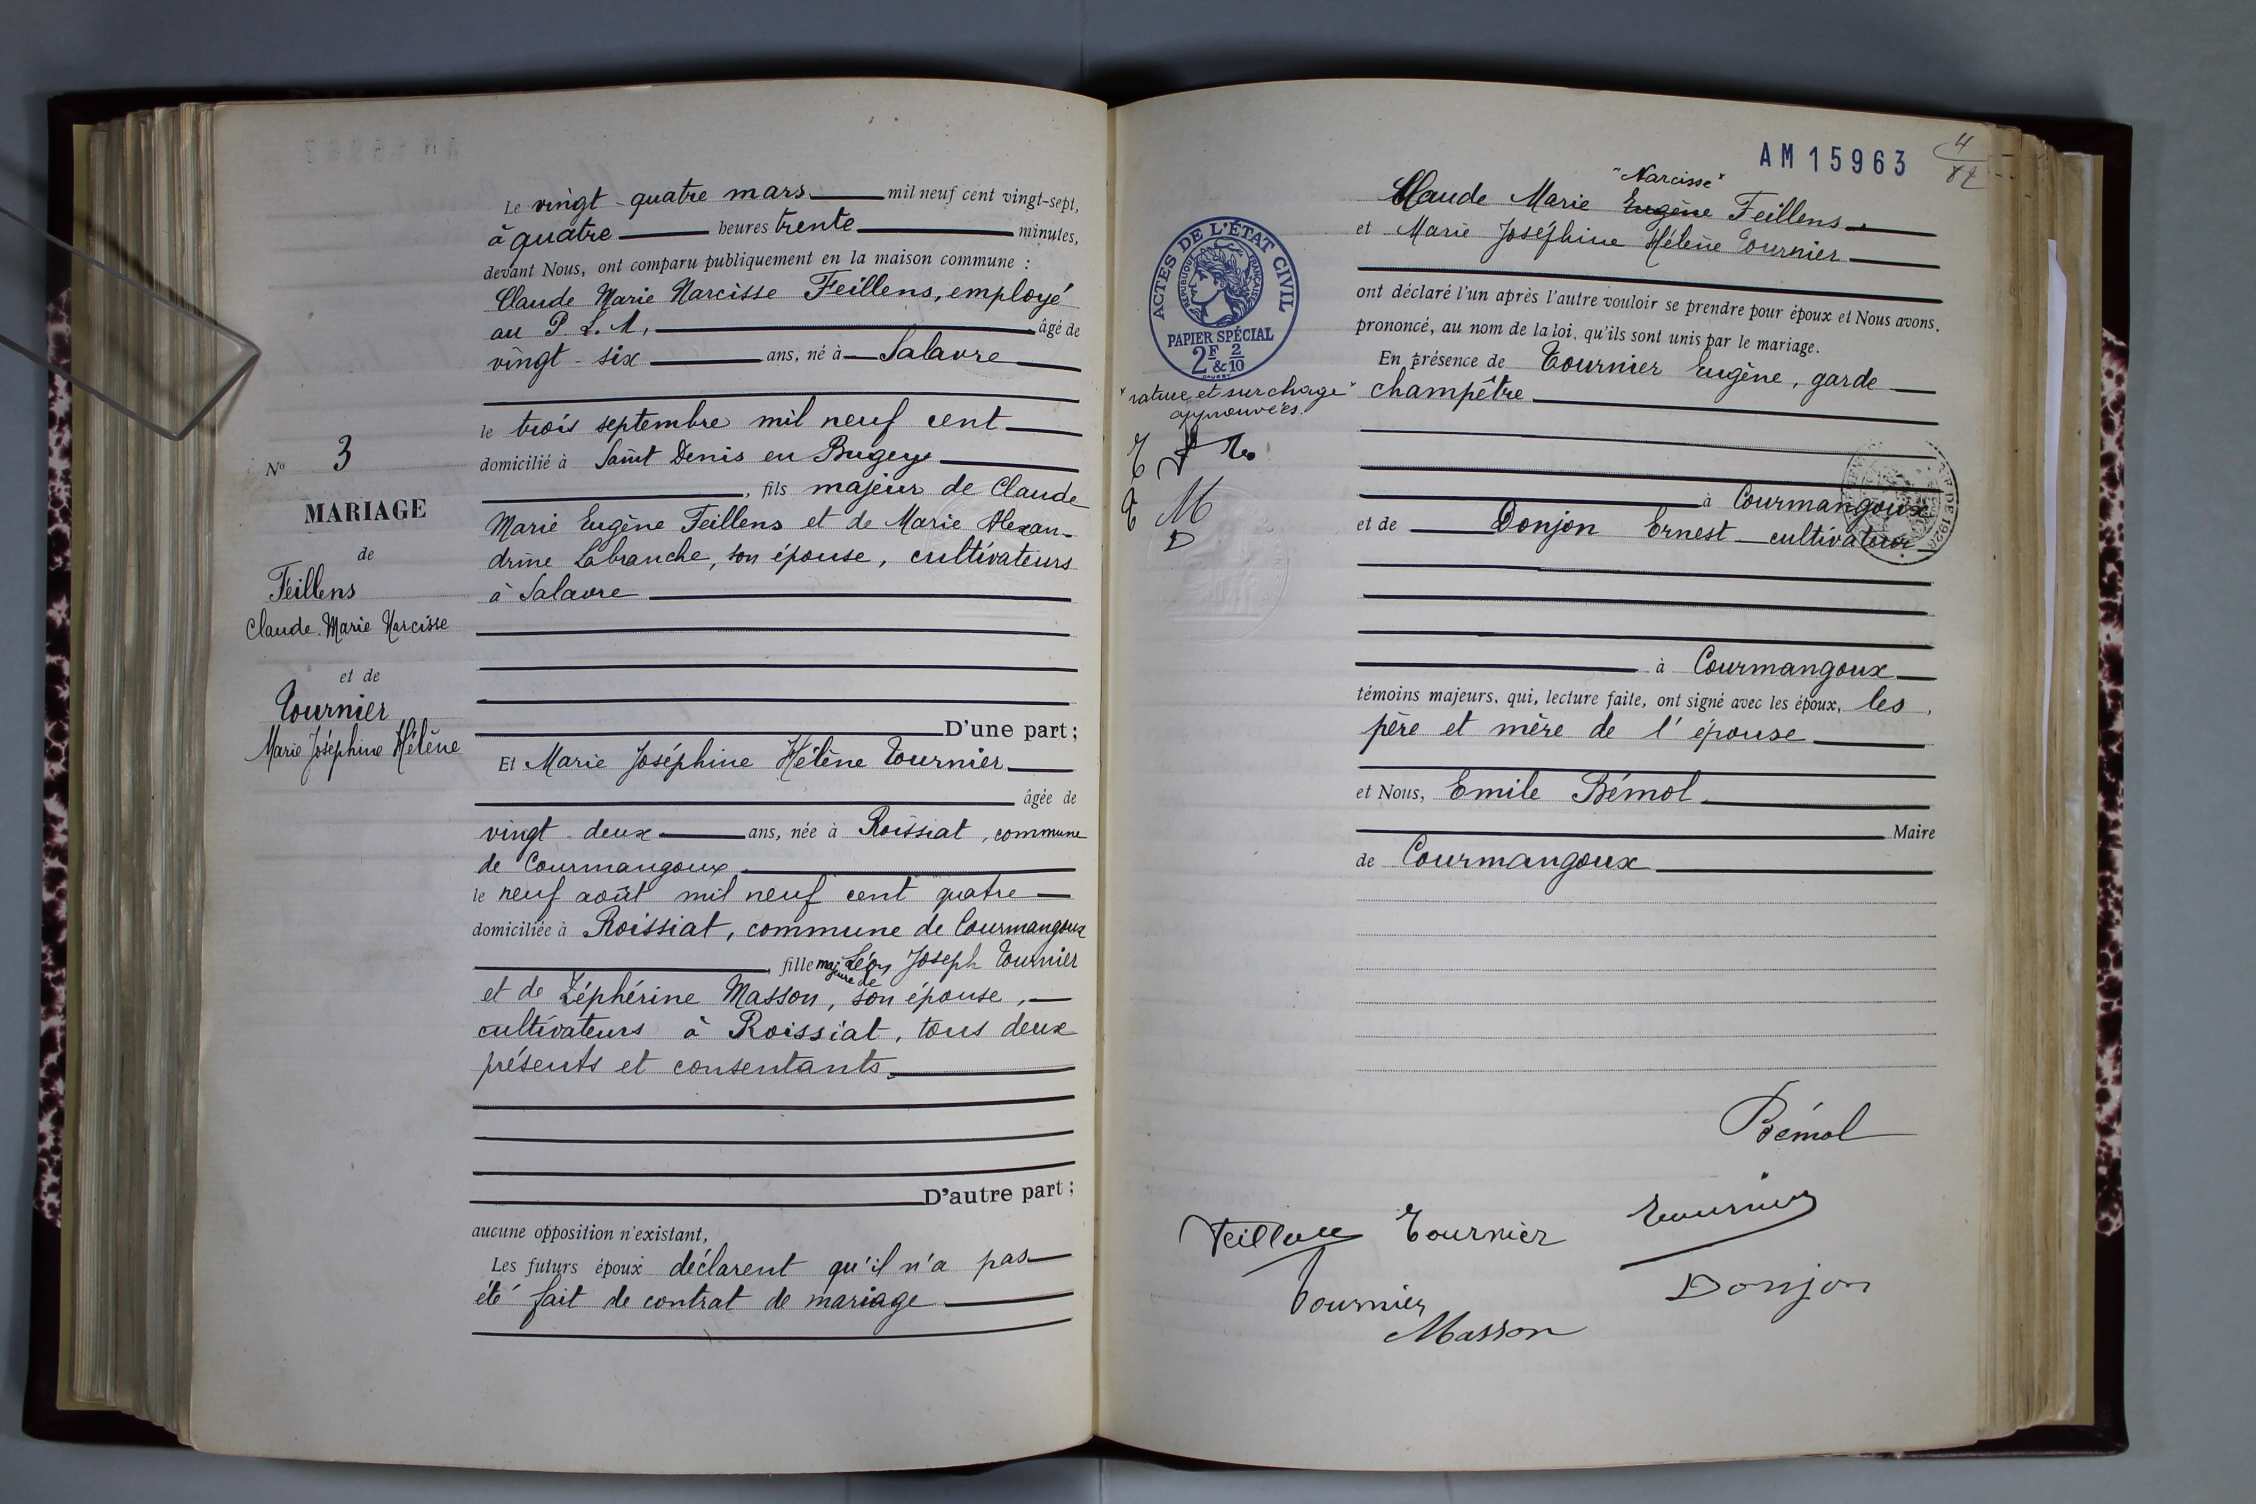 Le vingt-quatre mars mil neuf cent vingt-sept,
à quatre heures trente minutes,
devant Nous, ont comparu publiquement en la maison commune :
Claude Marie Narcisse Feillens, employé
au P. L. M, âgé de
vingt-six ans, né à Salavre
le trois septembre mil neuf cent
domicilié à Saint Denis en Bugey
, fils majeur de Claude
Marie Eugène Feillens et de Marie Alexan-
drine Labranche, son épouse, cultivateurs
à Salavre
D'une part ;
Et Marie Joséphine Hélène Tournier
âgée de
vingt-deux ans, née à Roissiat, commune
de Courmangoux
le neuf août mil neuf cent quatre
domiciliée à Roissiat, commune de Courmangoux
, fille majeure de Léon Joseph Tournier
et de Zéphérine Masson, son épouse,
cultivateurs à Roissiat, tous deux
présents et consentants.
D'autre part ;
aucune opposition n'existant,
Les futurs époux déclarent qu'il n'a pas
été fait de contrat de mariage
No 3
MARIAGE
de
Feillens
Claude Marie Narcisse
et de
Tournier
Marie Joséphine Hélène
AM 15963
4
"Narcisse"
Claude Marie Eugène Feillens
et Marie Joséphine Hélène Tournier
ont déclaré l'un après l'autre vouloir se prendre pour époux et Nous avons,
prononcé, au nom de la loi, qu'ils sont unis par le mariage.
En présence de Tournier Eugène, garde
champêtre
à Courmangoux
et de Donjon Ernest cultivateur
à Courmangoux
témoins majeurs, qui, lecture faite, ont signé avec les époux, les
père et mère de l'épouse
et Nous, Emile Bémol
Maire
de Courmangoux
ACTES DE L'ÉTAT CIVIL
RÉPUBLIQUE FRANÇAISE
PAPIER SPÉCIAL
2F & 2/10
"rature et surcharge"
approuvées.
M
D
Bémol
Feillens Tournier Tournier
Donjon
Tournier
Masson